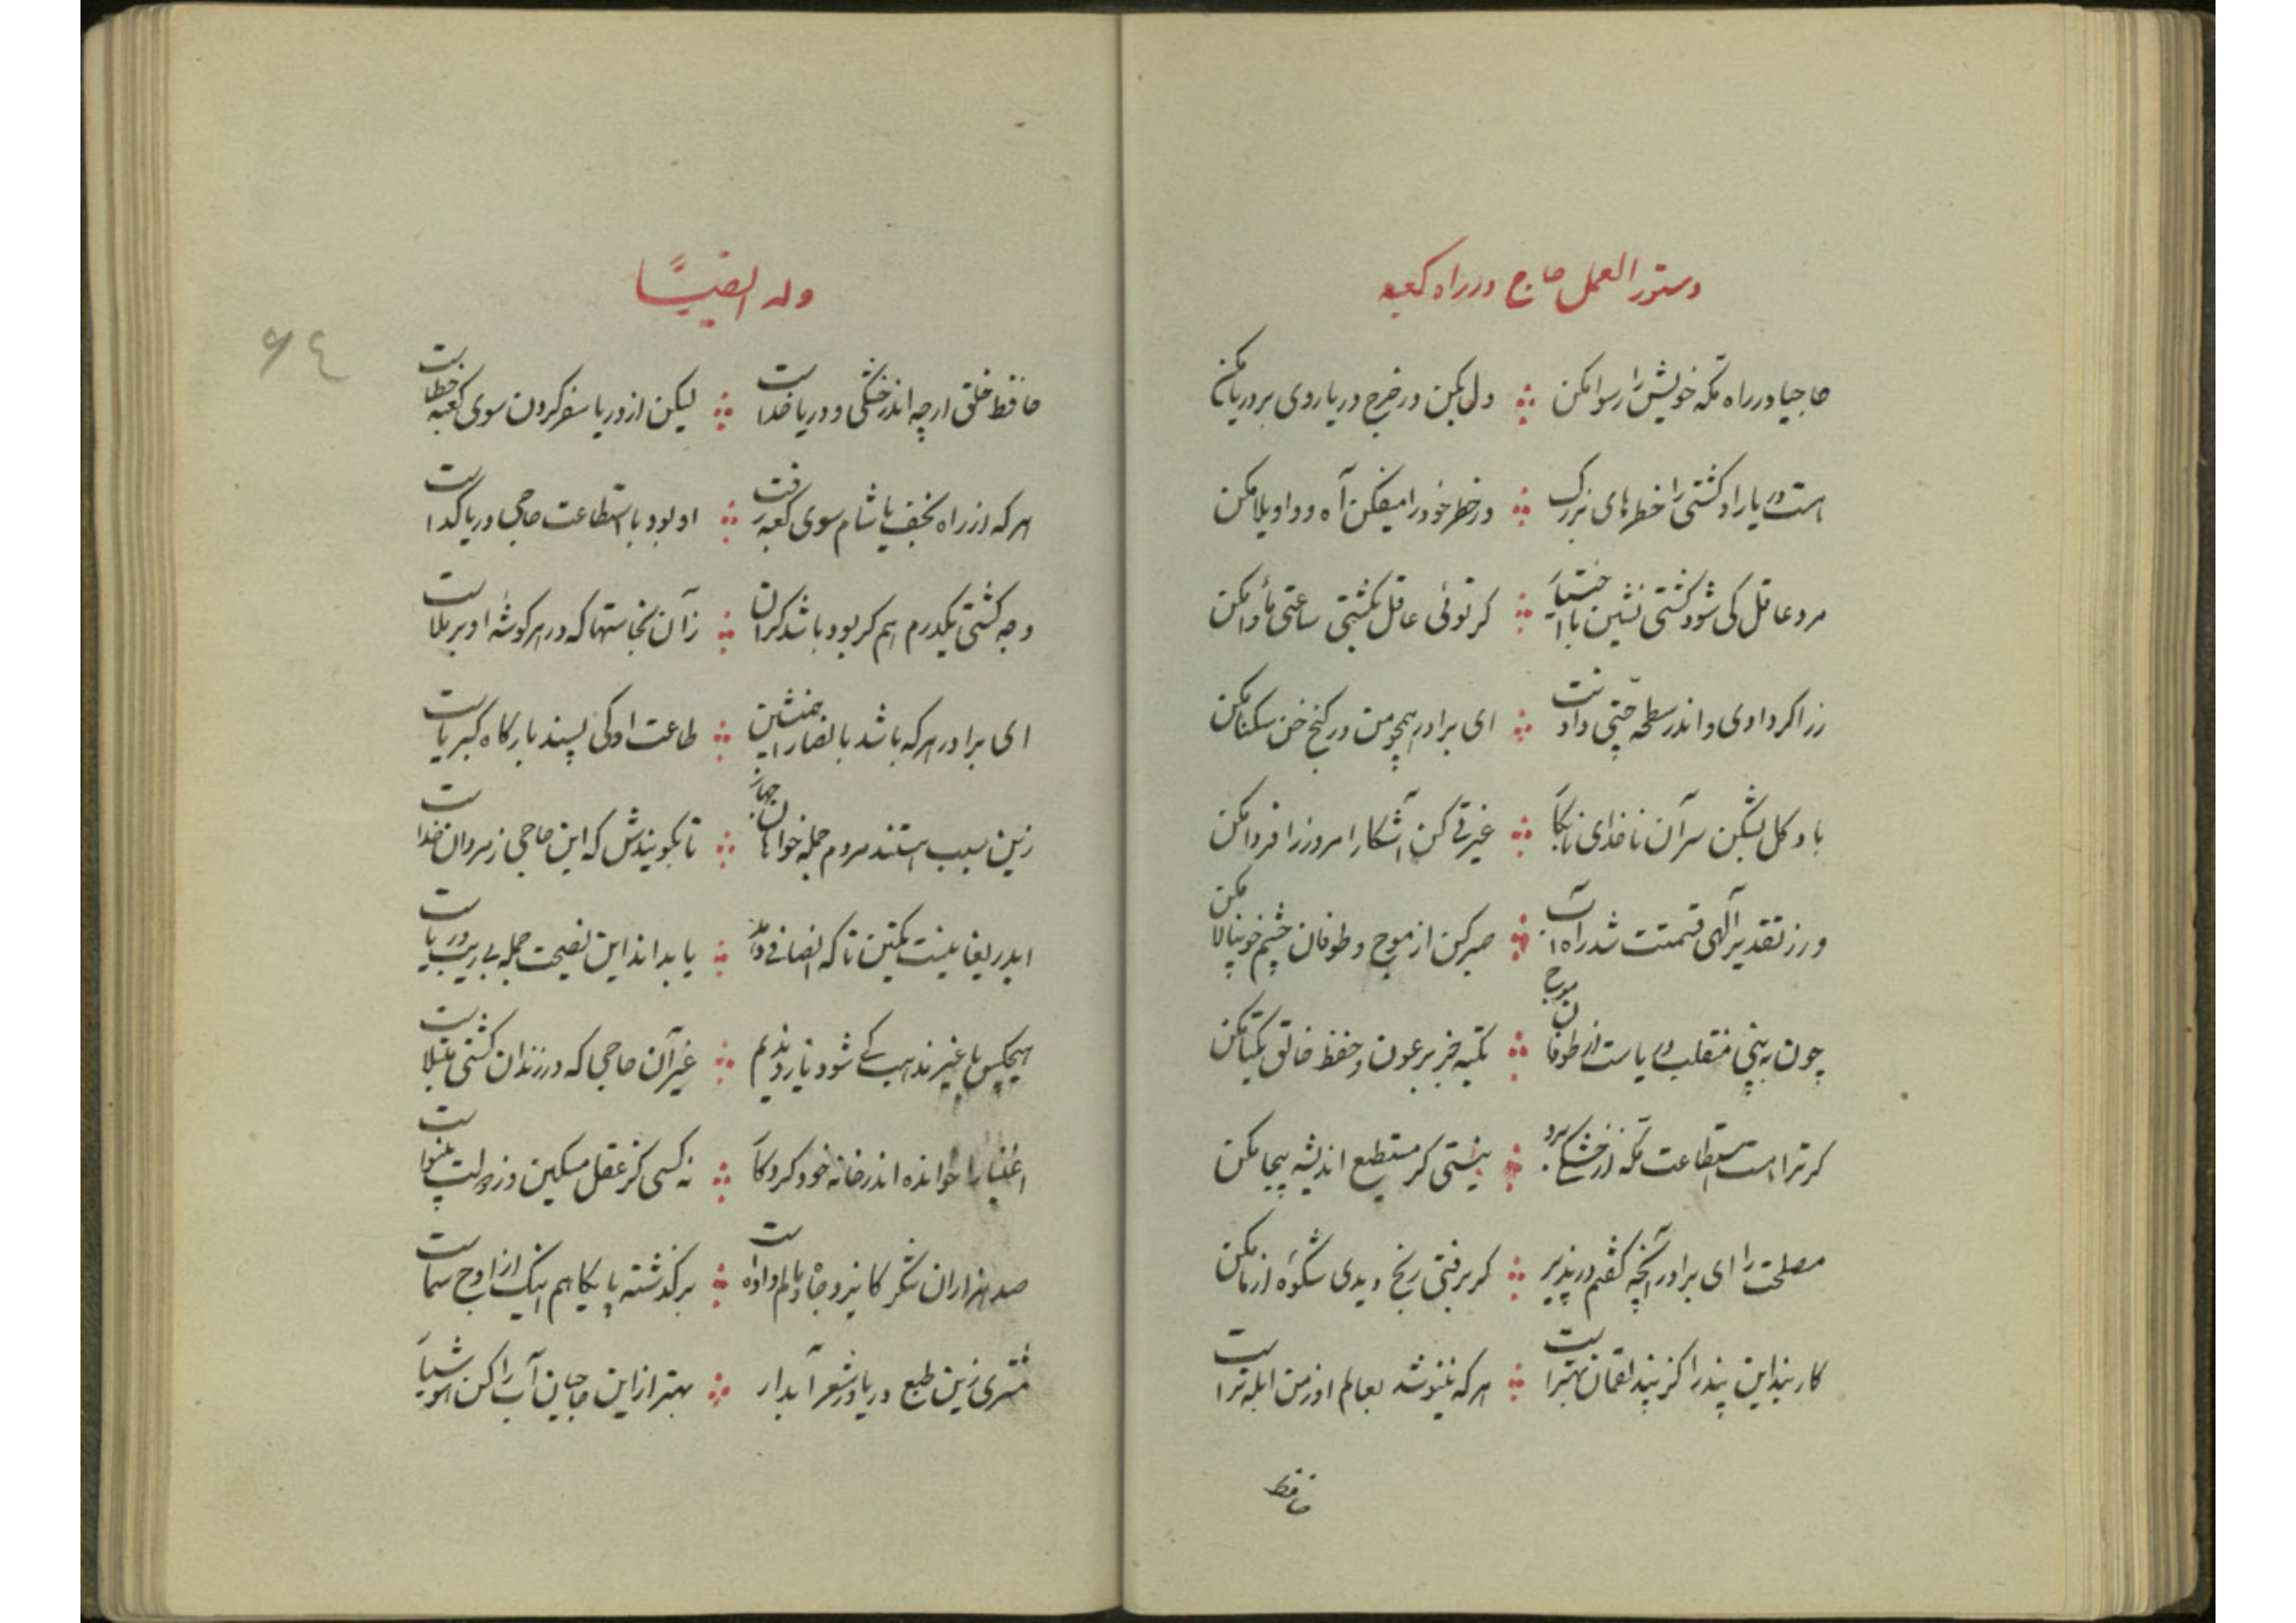 دستور العمل حاج در راه کعبه
حاجیا در راه مکه خویش را رسوا مکن ∴ دل بکن در خرج دریا روی بر دریا مکن
هست دریا را و کشتی را خطرهای بزرک ∴ در خطر خود را میفکن آه و واویلا مکن
مرد عاقل کی شود کشتی نشین با اختیار ∴ کر توئی عاقل بکشتی ساعتی مأوا مکن
زر اکر دادی و اندر سطحه جتی دادنت ∴ ای برادر همچو من در کنج خن سکنا مکن
با دکل بشکن سر آن ناخدای نابکار ∴ غیرتی کن آشکار امروز را فردا مکن
ور ز تقدیر آلهی قسمتت شد راه آب ∴ صبر کن از موج و طوفان چشم خونپالا مکن
چون به بینی منقلب دریاست از طوفان موج ∴ تکیه جز بر عون و حفظ خالق یکتا مکن
کر ترا هست استطاعت مکه از خشکی برو ∴ نیستی کر مستطیع اندیشه بیجا مکن
مصلحت را ای برادر آنچه کفتم در پذیر ∴ کر برفتی رنج دیدی شکوه از ما مکن
کار بند این پند را کز پند لقمان بهتر است ∴ هر که ننیوشد بعالم او ز من ابله تر است
حافظ
وله ایضاً
۶٤
حافظ خلق ارچه اندر خشکی و دریا خداست ∴ لیکن از دریا سفر کردن سوی کعبه خطاست
هر که از راه نجف یا شام سوی کعبه رفت ∴ او بود با استطاعت حاجی دریا کداست
وجه کشتی یکدرم هم کر بود باشد کران ∴ زآن نجاستها که در هر کوشهٔ او بر ملاست
ای برادر هر که باشد با نصارا همنشین ∴ طاعت او کی پسند بارکاه کبریاست
زین سبب هستند مردم جمله خواهان جهاز ∴ تا بکویندش که این حاجی ز مردان خداست
ایدریغا نیست تمکین تا که انصافی دهد ∴ یا بداند این نصیحت جمله بی ریب و ریاست
هیچکس با غیر مذهب کی شود یار و ندیم ∴ غیر آن حاجی که در زندان کشتی مبتلاست
اغنیا را خوانده اندر خانه خود کردکار ∴ نه کسی کز عقل مسکین وز دولت بینواست
صد هزاران شکر کایزد جاه و مالم داده است ∴ بر کذشته پایکاهم اینک از اوج سماست
مشتری زین طبع دریا و ز شعر آبدار ∴ بهتر از این حاجیان آب را کن هوشیار